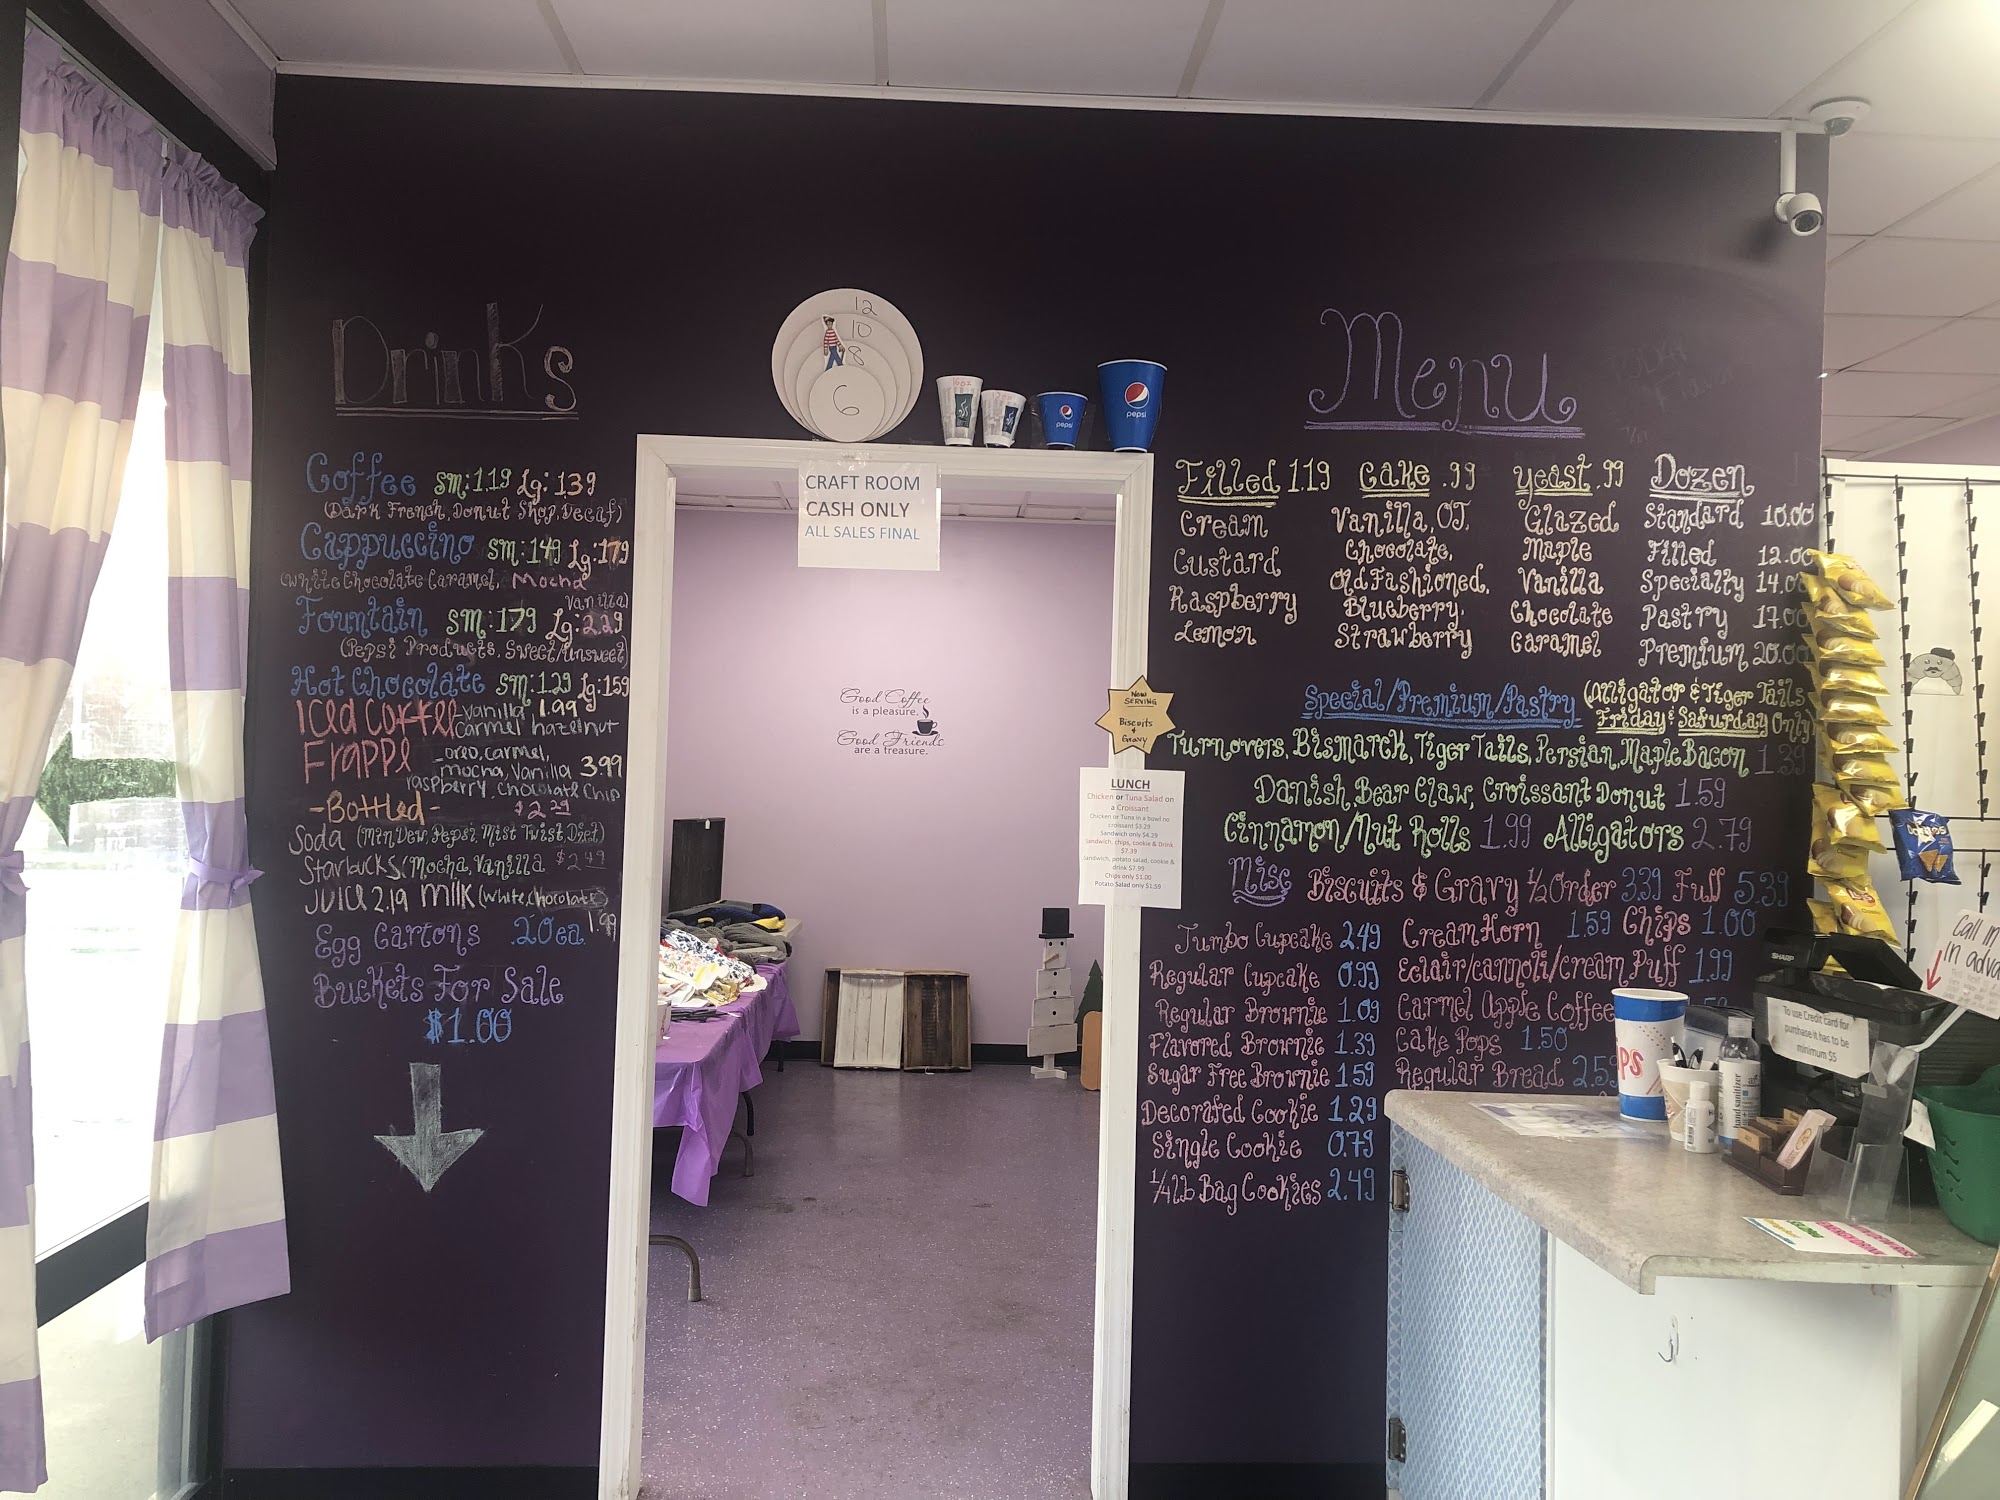 Drinks
Coffee sm:1.19 Lg: 1.39
(Dark French, Donut Shop, Decaf)
Cappuccino sm:1.49 Lg:1.79
(White Chocolate Caramel, Mocha
Vanilla)
Fountain sm:1.79 Lg:2.29
(Pepsi Products, Sweet/Unsweet)
Hot Chocolate sm:1.29 Lg:1.59
Iced Coffee -vanilla 1.99
Carmel hazelnut
Frappe -oreo, carmel,
mocha, vanilla 3.99
raspberry, chocolate chip
-Bottled- $2.29
Soda (Mtn Dew, Pepsi, Mist Twist, Diet)
Starbucks (Mocha, Vanilla $2.49
Juice 2.19 milk (White, Chocolate)
1.99
Egg Cartons .20 ea.
Buckets For Sale
$1.00
12
10
8
6
16oz
12oz
pepsi
pepsi
CRAFT ROOM
CASH ONLY
ALL SALES FINAL
Good Coffee
is a pleasure.
Good Friends
are a treasure.
Now
SERVING
Biscuits
&
Gravy
LUNCH
Chicken or Tuna Salad on
a Croissant
Chicken or Tuna in a bowl no
croissant $3.29
Sandwich only $4.29
Sandwich, chips, cookie & Drink
$7.39
Sandwich, potato salad, cookie &
drink $7.99
Chips only $1.00
Potato Salad only $1.59
Menu
Filled 1.19 Cake .99 Yeast .99 Dozen
Cream Vanilla, OJ. Glazed Standard 10.00
Custard Chocolate, Maple Filled 12.00
Raspberry Old Fashioned, Vanilla Specialty 14.00
Lemon Blueberry, Chocolate Pastry 17.00
Strawberry Caramel Premium 20.00
Special/Premium/Pastry (Alligator & Tiger Tails
Friday & Saturday Only)
Turnovers, Bismarck, Tiger Tails, Persian, Maple Bacon 1.39
Danish, Bear Claw, Croissant Donut 1.59
Cinnamon/Nut Rolls 1.99 Alligators 2.79
Misc Biscuits & Gravy ½ Order 3.39 Full 5.39
Jumbo Cupcake 2.49 Cream Horn 1.59 Chips 1.00
Regular Cupcake 0.99 Eclair/Cannoli/Cream Puff 1.99
Regular Brownie 1.09 Carmel Apple Coffee
Flavored Brownie 1.39 Cake Pops 1.50
Sugar Free Brownie 1.59 Regular Bread 2.59
Decorated Cookie 1.29
Single Cookie 0.79
1/4 lb Bag Cookies 2.49
Lay's
SHARP
Call in
in adva
To use Credit card for
purchase it has to be
minimum $5
hand sanitizer